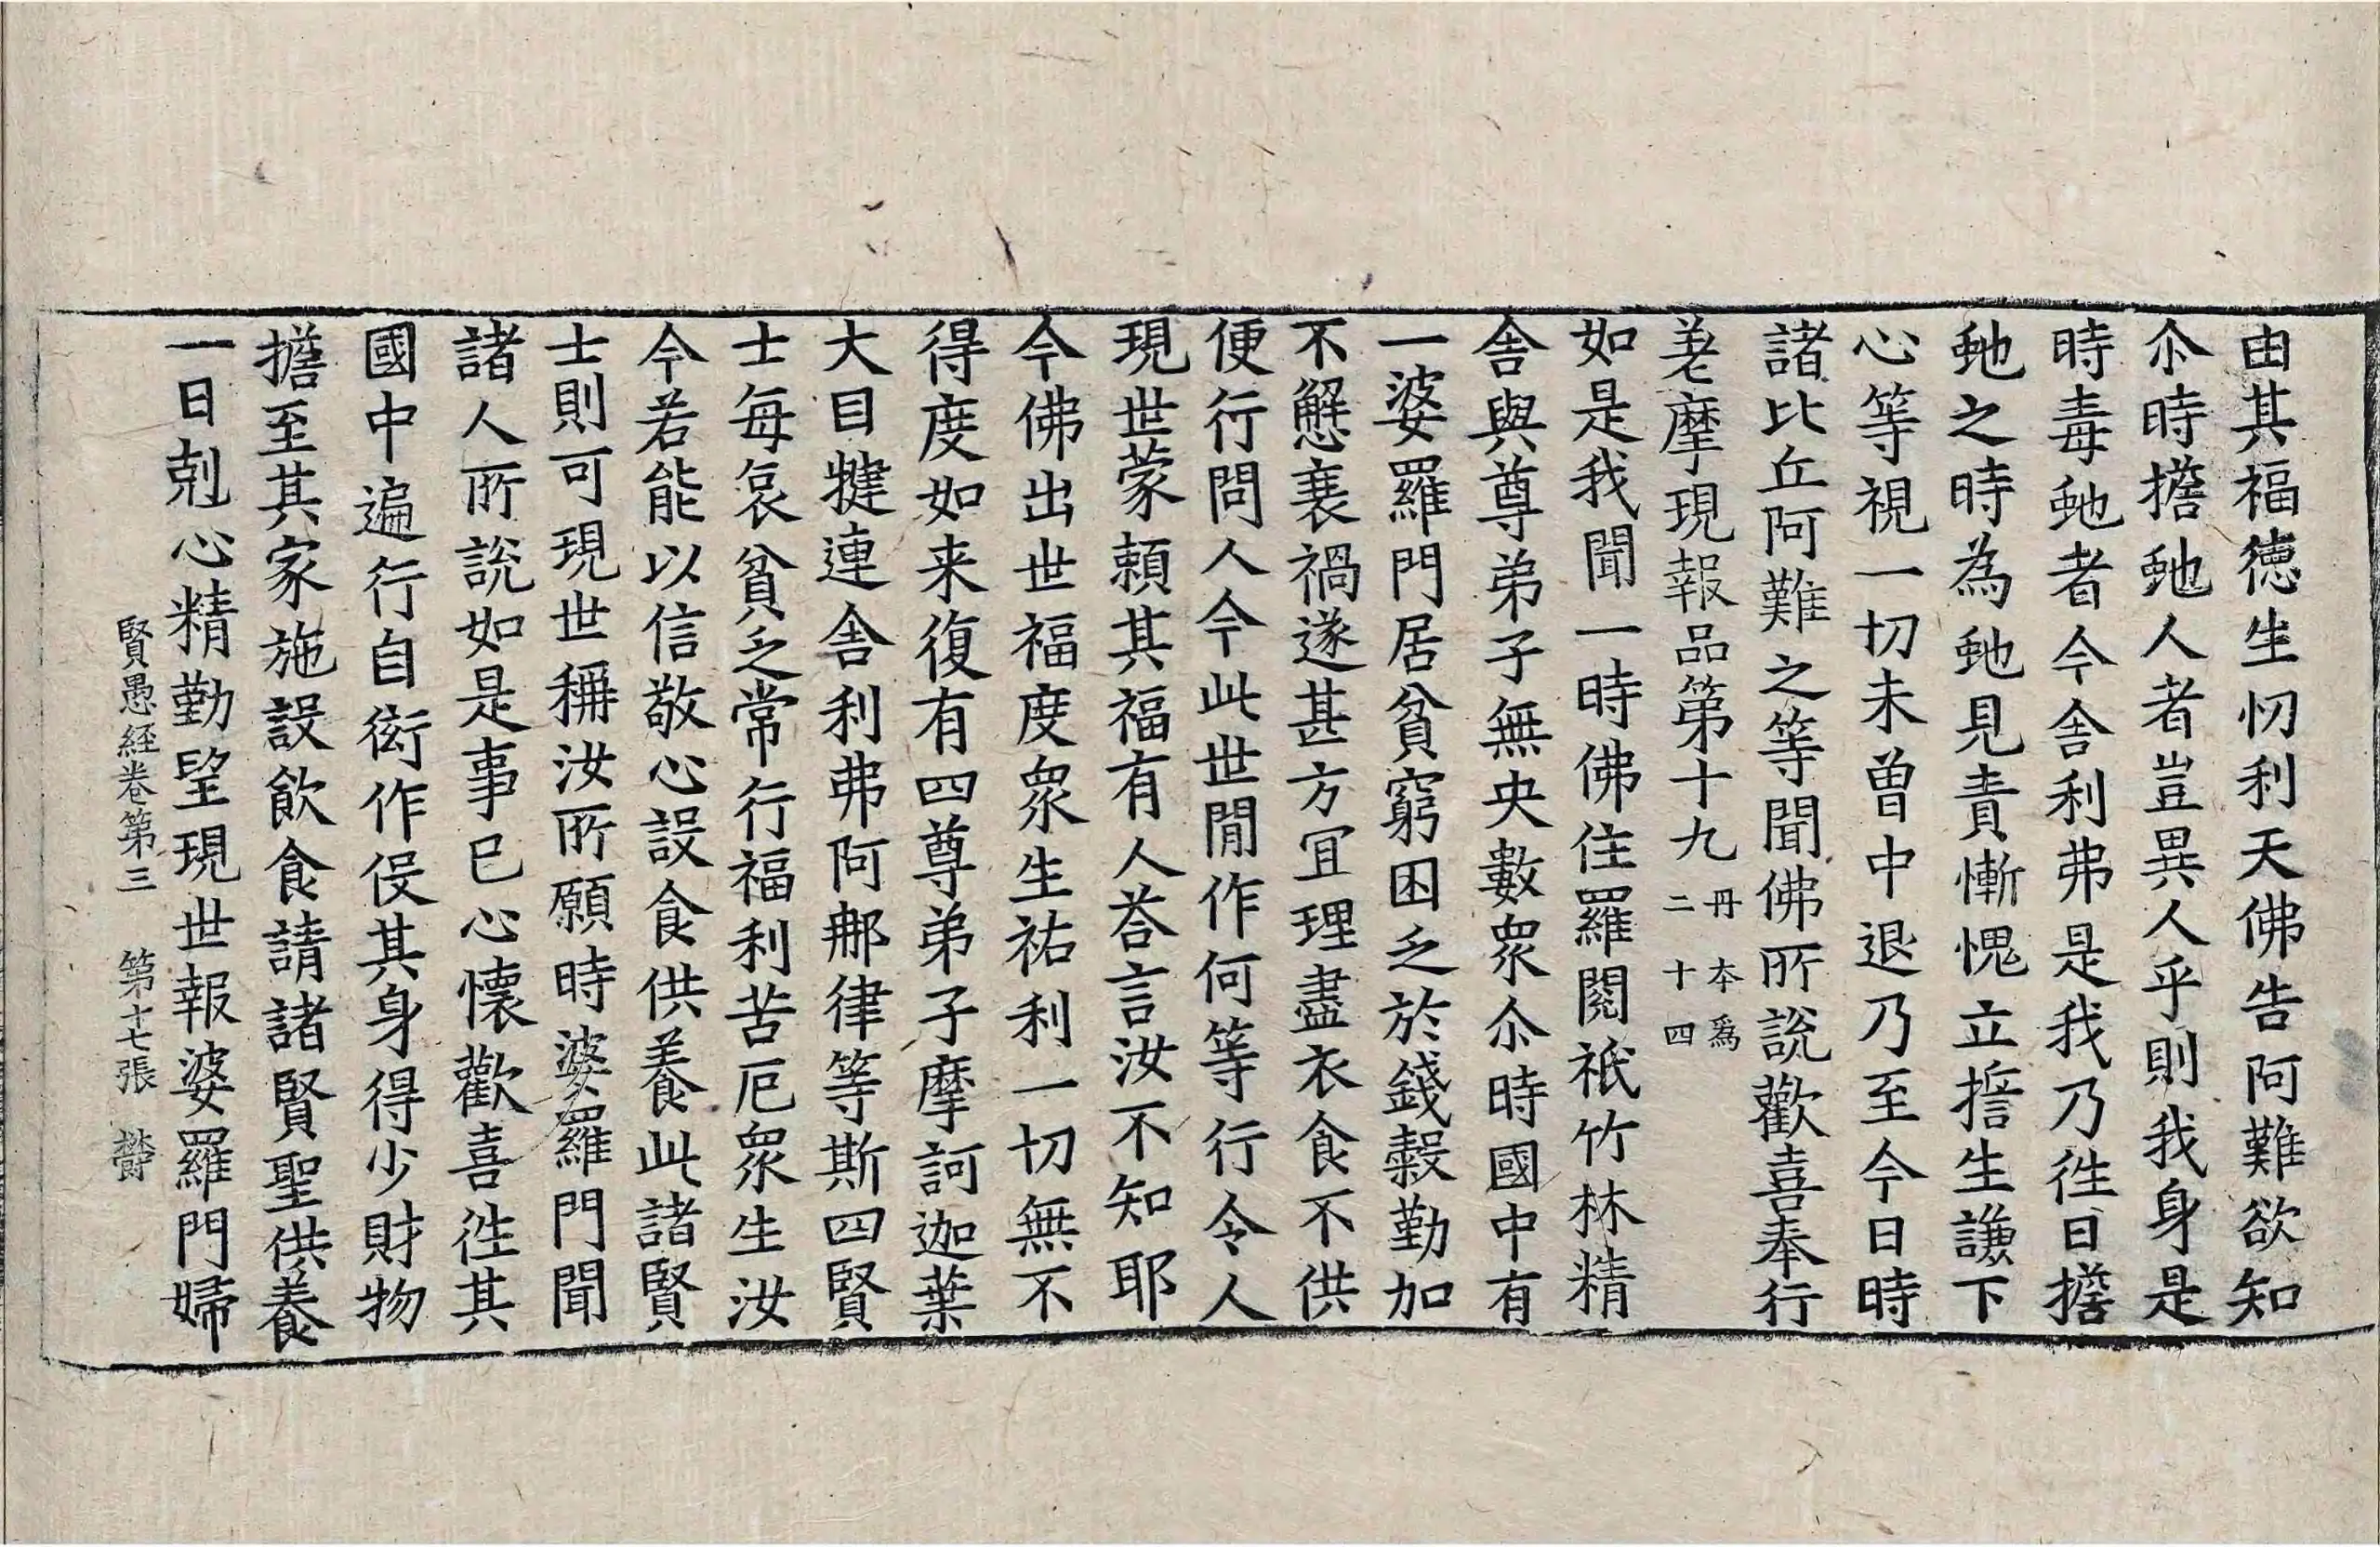 由其福德生忉利天佛告阿難欲知
尒時擔虵人者豈異人乎則我身是
時毒虵者今舍利弗是我乃徃日擔
虵之時為虵見責慚愧立擔生謙下
心等視一切未曽中退乃至今日時
諸比丘阿難之等聞佛所說歡喜奉行
差摩現報品第十九丹本為二十四
如是我聞一時佛住羅閱祇竹林精
舍與尊弟子無央數衆尒時國中有
一婆羅門居貧窮困乏於錢穀勤加
不懈衰禍遂甚方冝理盡衣食不供
便行問人今此世間作何等行令人
現世蒙頼其福有人荅言汝不知耶
今佛出世福度衆生祐利一切無不
得度如来復有四尊弟子摩訶迦葉
大目揵連舍利弗阿那律等斯四賢
士每哀貧乏常行福利苦厄衆生汝
今若能以信敬心設食供養此諸賢
士則可現世稱汝所願時婆羅門聞
諸人所說如是事已心懷歡喜徃其
國中遍行自衒作役其身得少財物
擔至其家施設飲食請諸賢聖供養
一日剋心精勤望現世報婆羅門婦
賢愚経卷第三 第十七張 欝